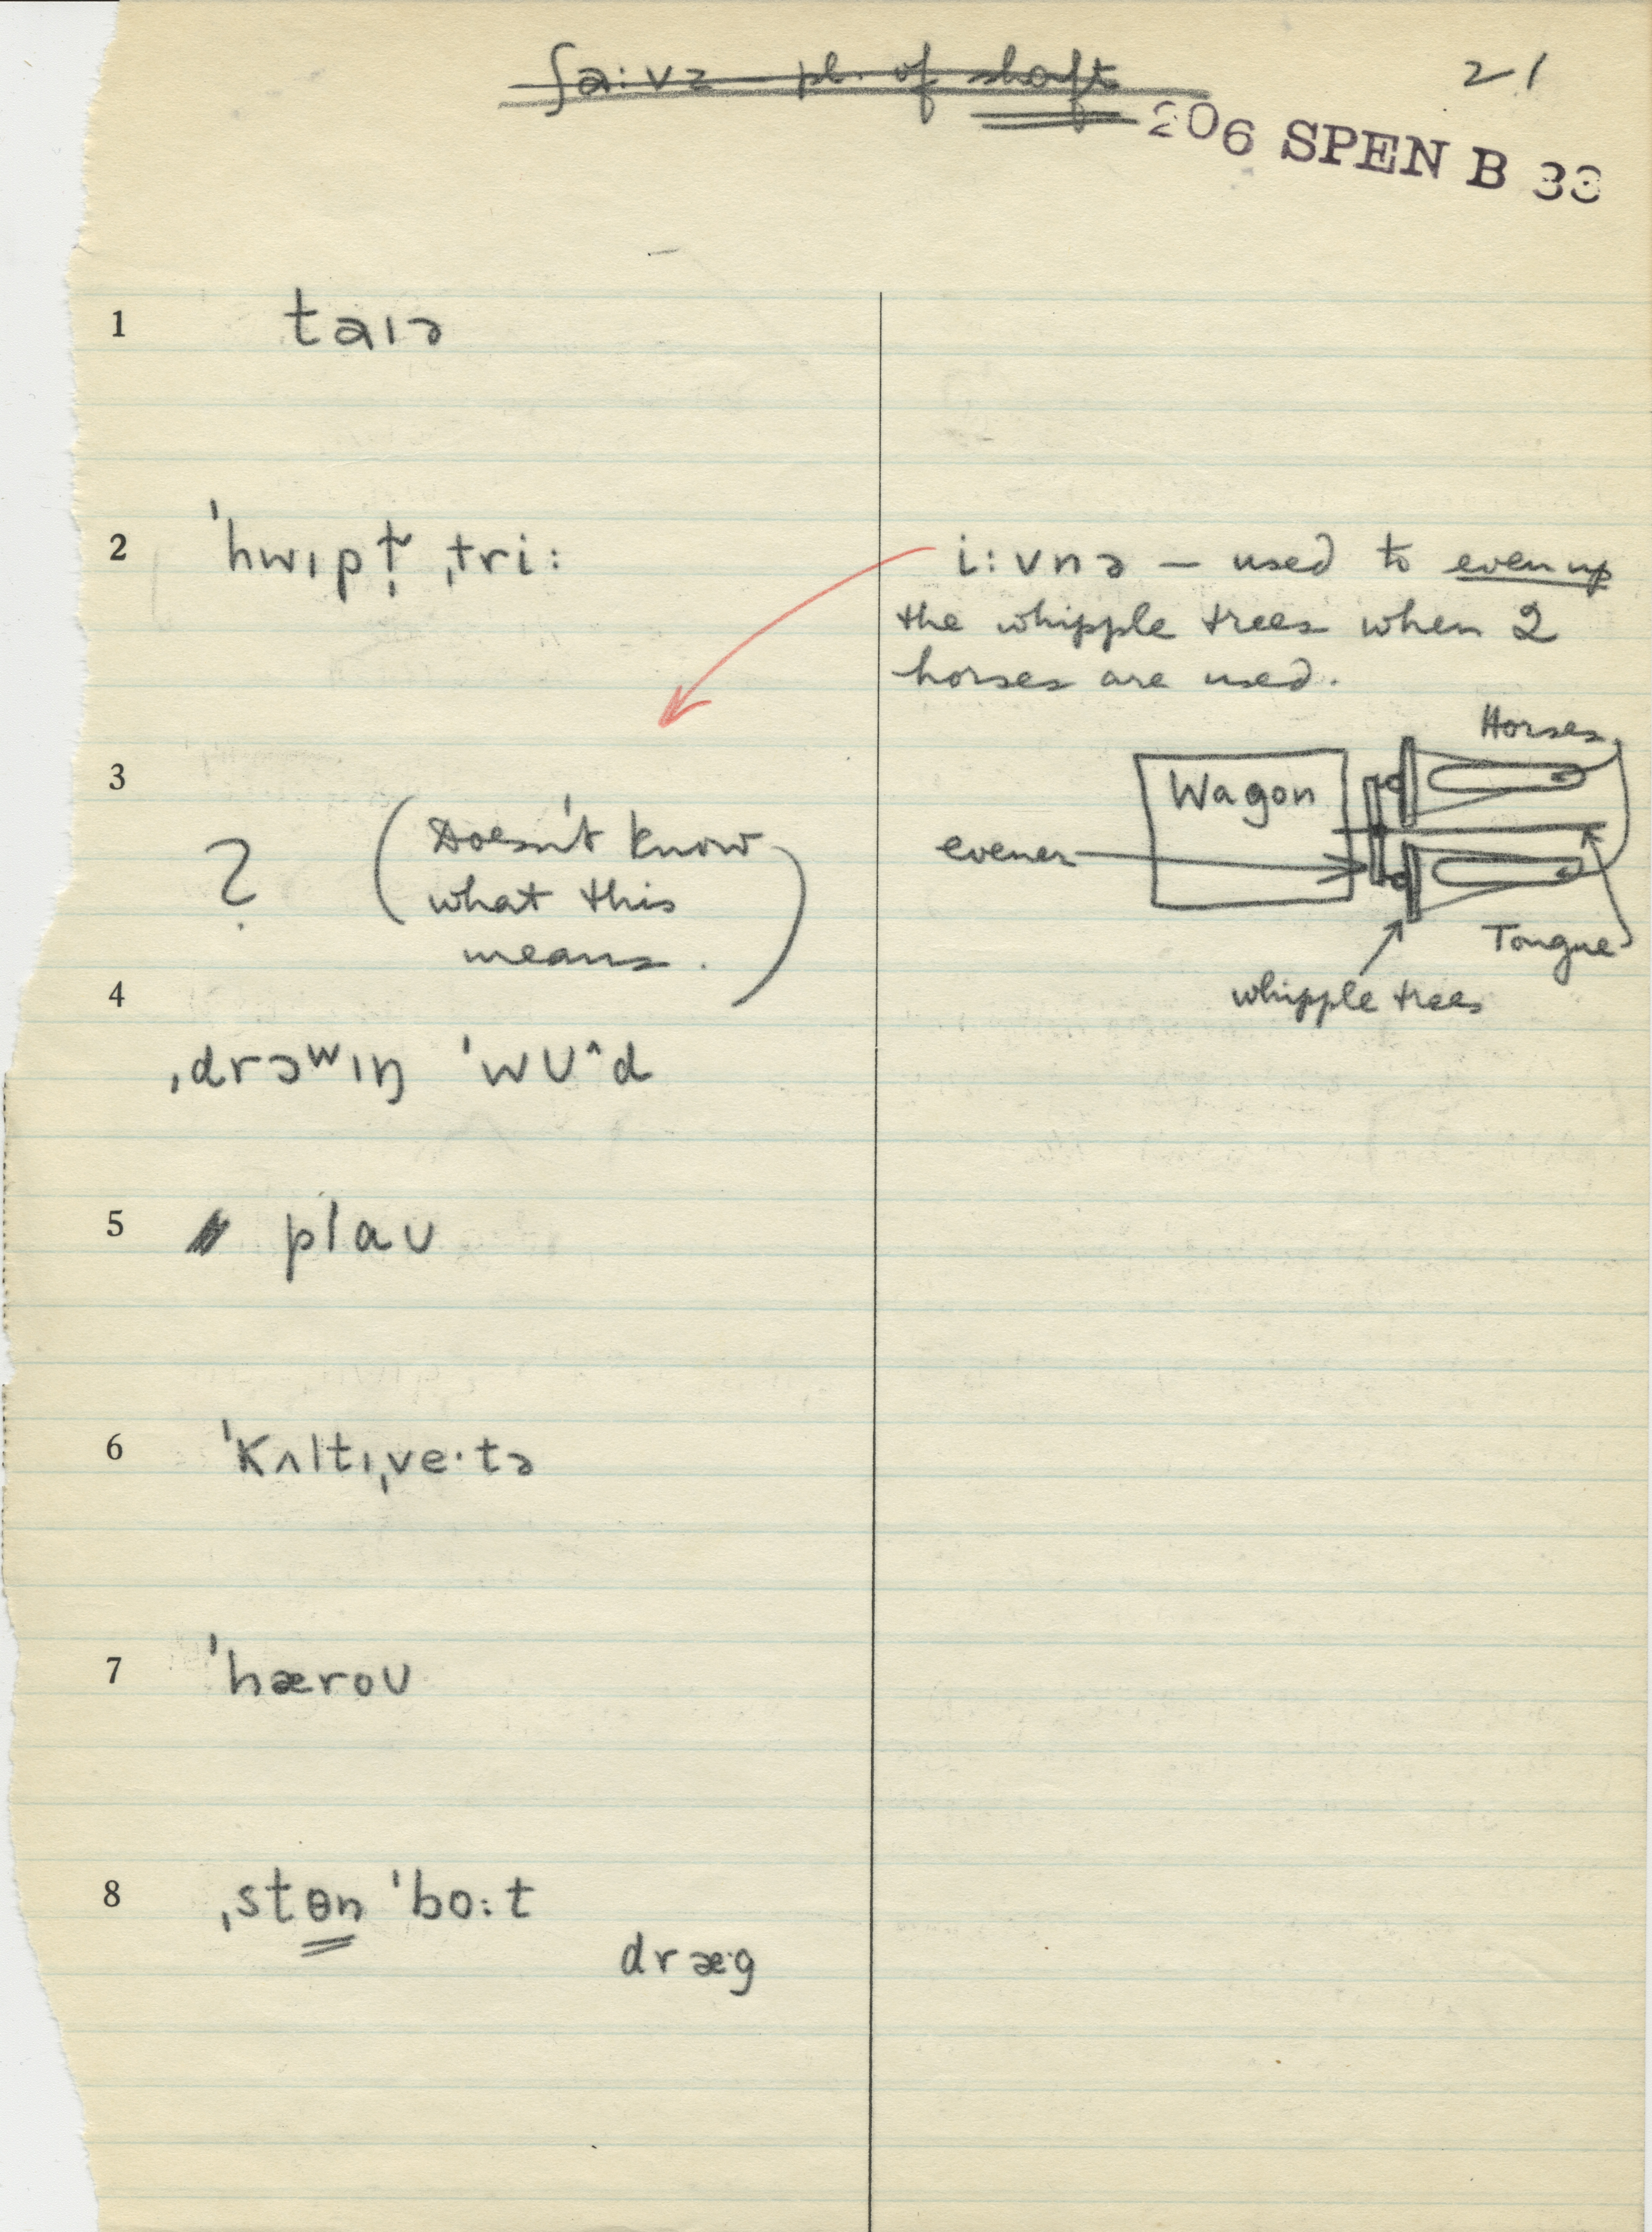 ~~ʃa:vz — pl. of shaft~~
21
206 SPEN B 33
1 taɪə
2 ˈhwɪpt̬̩ ˌtri:
i:vnə — used to even up
the whipple trees when 2
horses are used.
3
? (Doesn't know
what this
means.)
Horses
Wagon
evener
Tongue
whipple trees
4
ˌdrɔʷɪŋ ˈwʊ^d
5 plaʊ
6 ˈkʌltɪˌve·tə
7 ˈhæroʊ
8 ˌstɵn ˈbo:t
dræ·g